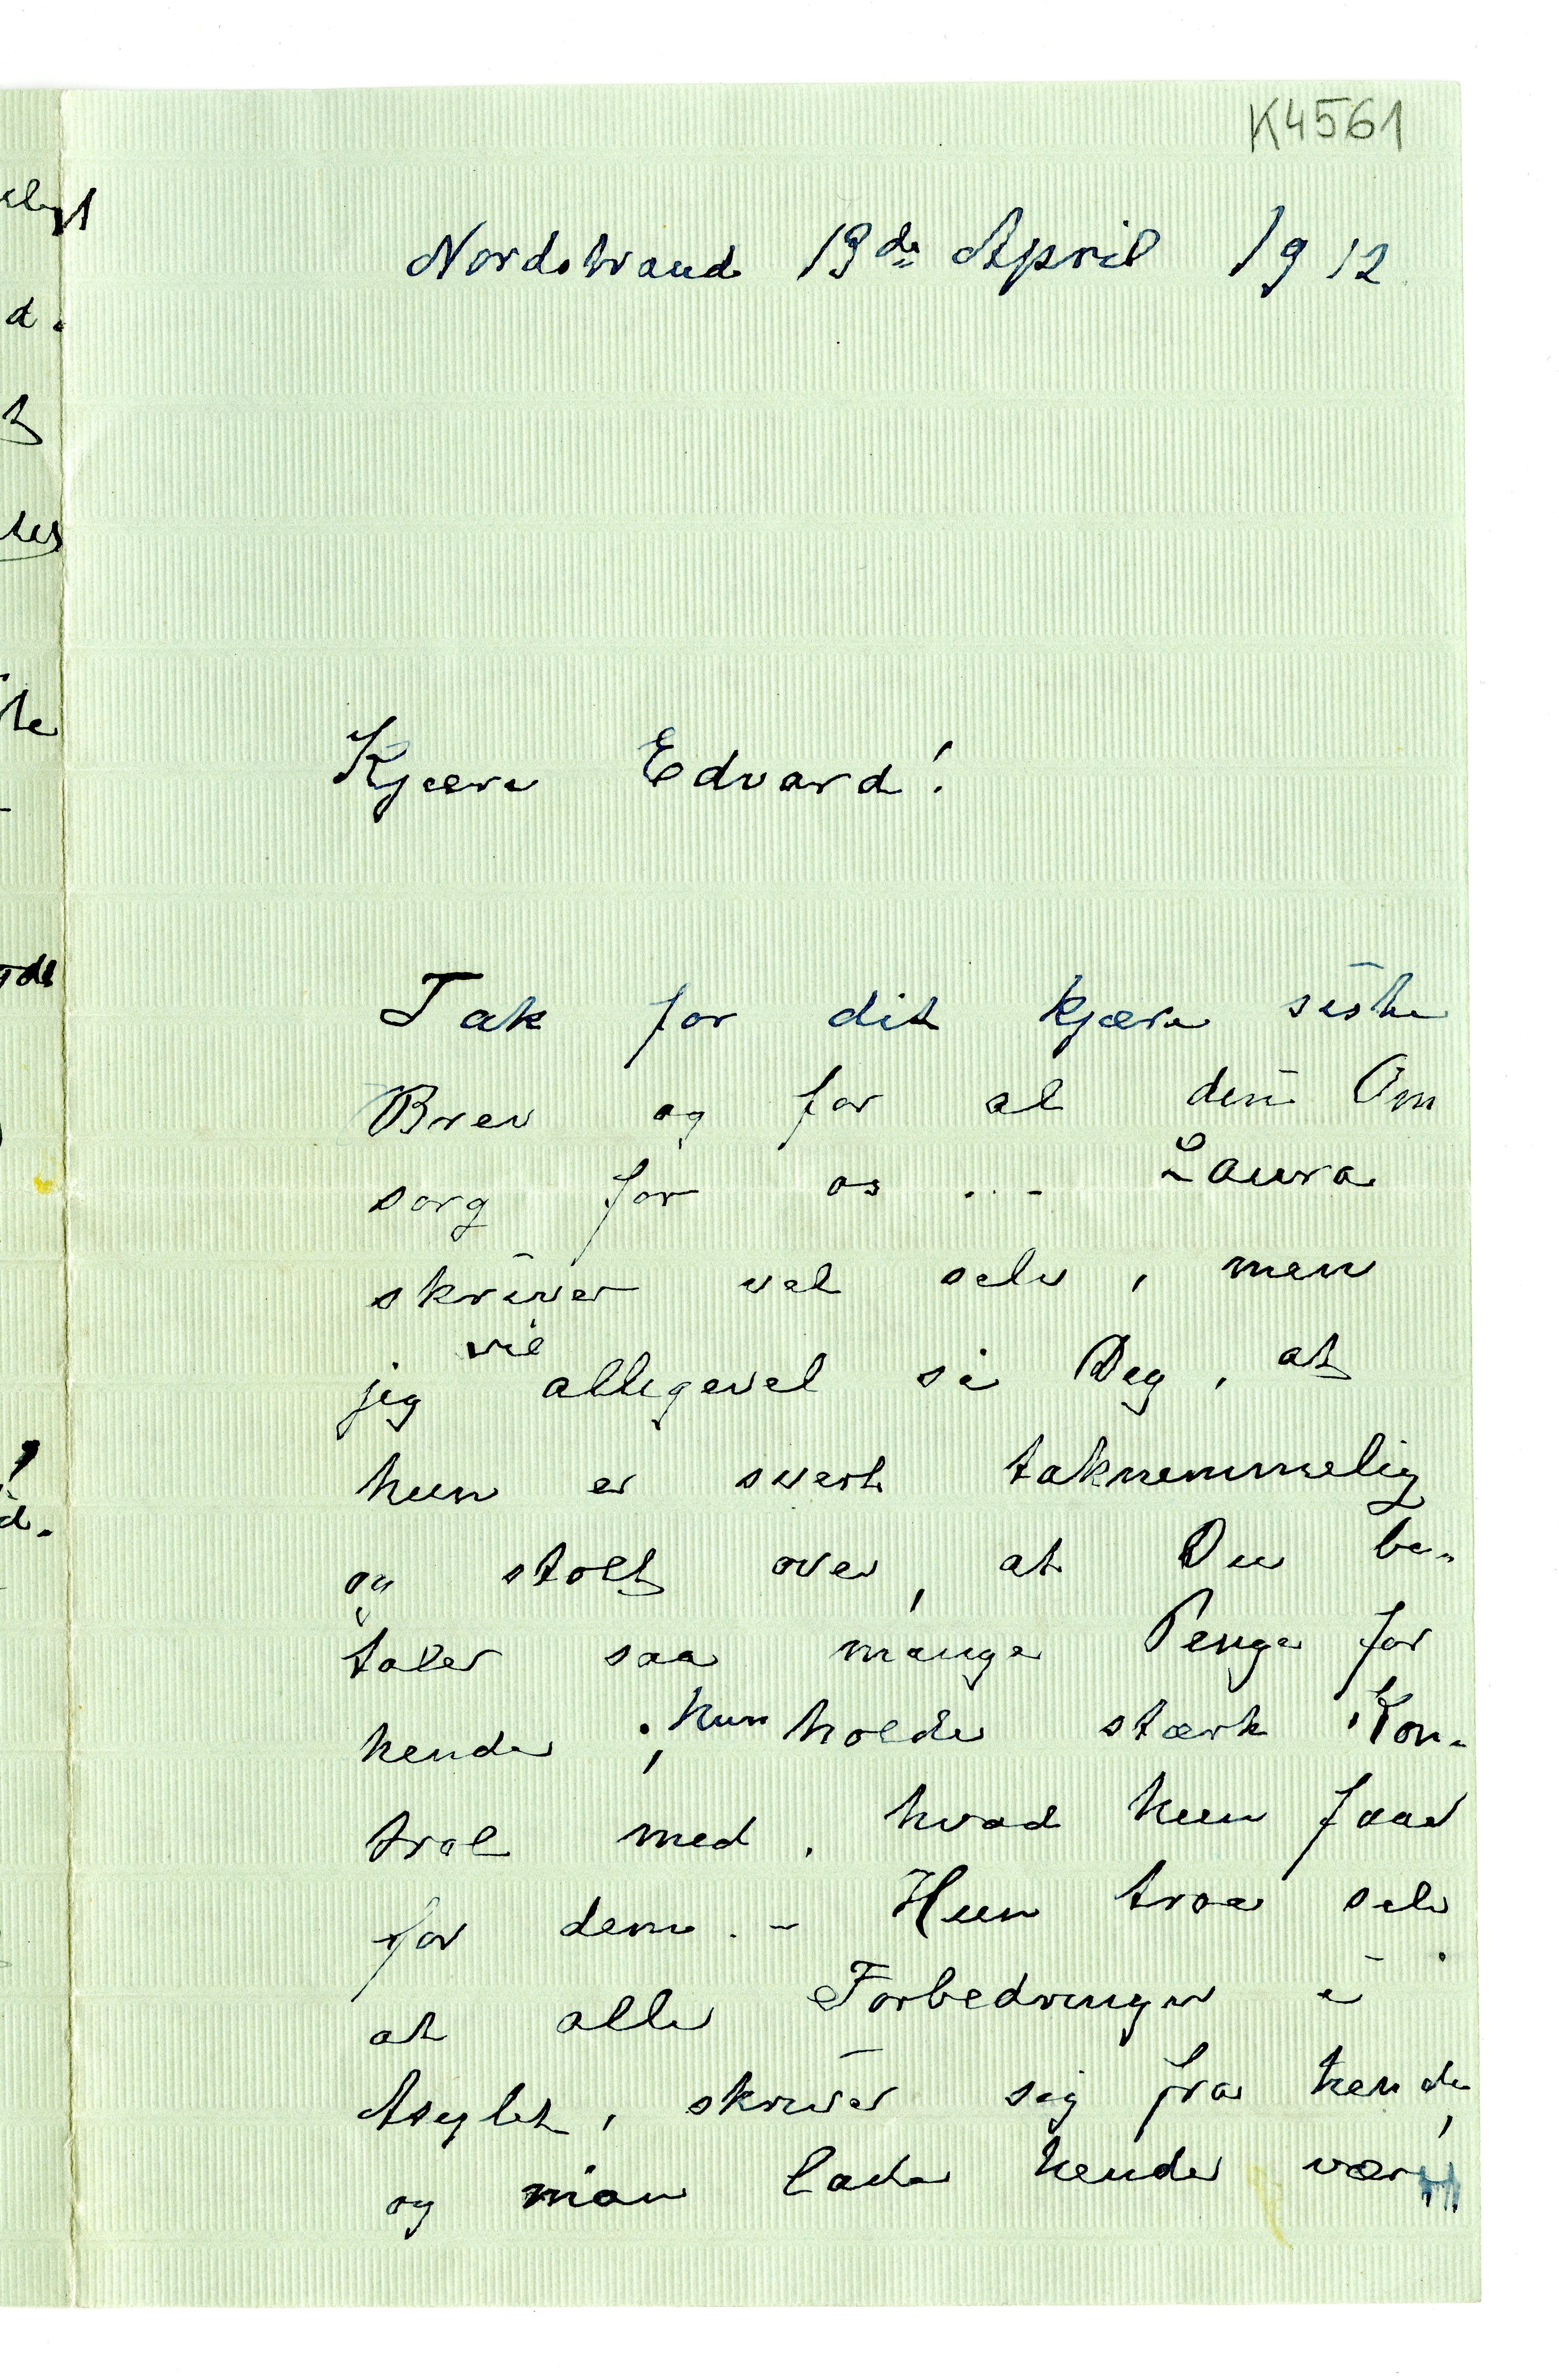 K4561
Nordstrand 19de April 1912
Kjære Edvard!
Tak for dit kjære siste
Brev og for al din Om
sorg for os ... Laura
skriver vel selv, men
jeg vil alligevel si Deg, at
hun er svert taknemmelig
og stolt over, at Du be-
taler saa mange Penge for
hende; hun holder stærk Kon-
trol med, hvad hun faar
for dem. - Hun tror selv
at alle Forbedringer i
Asylet, skriver sig fra hende,
og man lader hende være